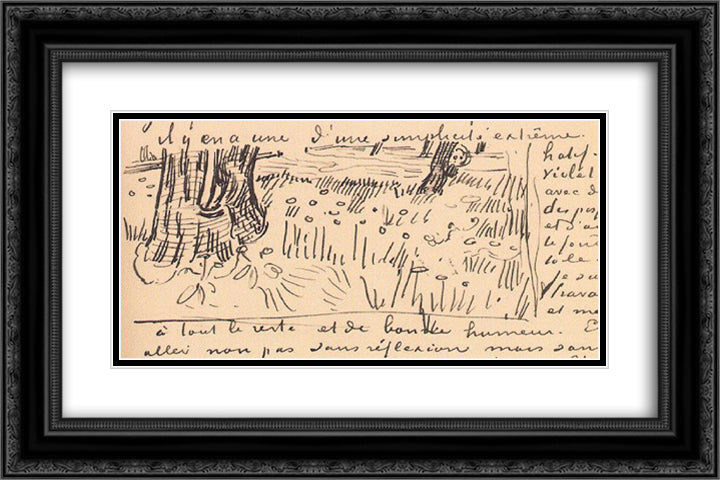 il y en a une d'une simplicité extrême.
violet
avec d
et d'a
je su
trava
et me
à tout le reste et de bonne humeur. E
aller non pas sans réflexion mais san